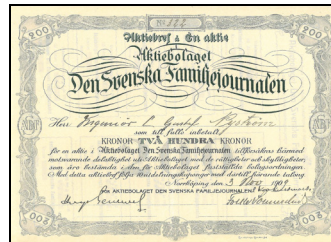 200 No 188 200
Aktiebref à En aktie
Aktiebolaget
Den Svenska Familjejournalen
Herr Ingeniör C. Gustaf
som till fullo inbetalt
KRONOR TVÅ HUNDRA KRONOR
för en aktie i Aktiebolaget Den Svenska Familjejournalen tillförsäkras härmed
motsvarande delaktighet uti Aktiebolaget med de rättigheter och skyldigheter,
som äro bestämda i den för Aktiebolaget fastställda bolagsordningen.
Med detta aktiebref följa utdelningskuponger med därtill hörande talong.
Norrköping den 3 Nov 1909
FÖR AKTIEBOLAGET DEN SVENSKA FAMILJEJOURNALEN
200 200